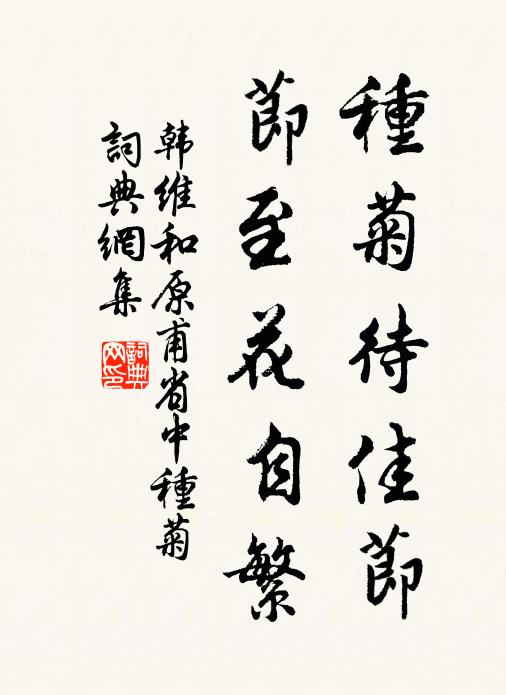 種菊待佳節
節至花自繁
韩維和原甫省中種菊
詞典網集
詞典网印